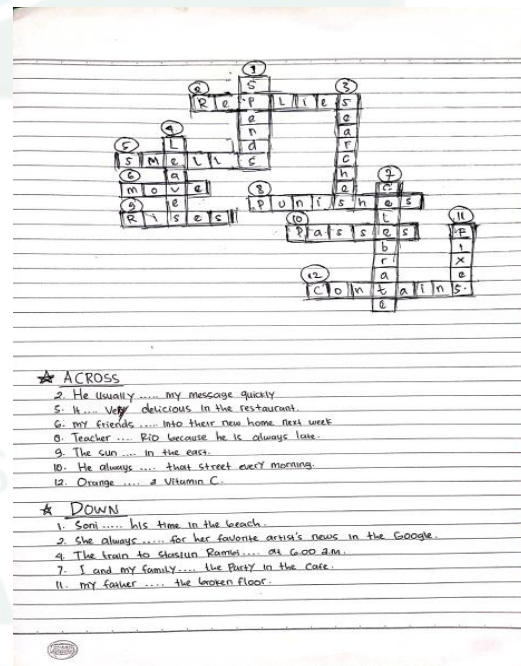 1
S
2 3
R e P L i e s
e e
n a
4 d r
5 L c
S M e L L S
6 a h 7
m o v e 8 e c
9 e P u n i s h e s
R i s e s 10 L 11
P a s s e s F
b i
r x
12 a e
C o n t a i n s.
e
☆ ACROSS
2. He usually ..... my message quickly
5. It .... Very delicious in the restaurant.
6. my friends ..... into their new home next week
8. Teacher .... Rio because he is always late.
9. The sun .... in the east.
10. He always .... that street every morning.
12. Orange .... a Vitamin C.
☆ DOWN
1. Soni ..... his time in the beach.
2. She always ..... for her favorite artist's news in the Google.
4. The train to Stasiun Rambi.... at 6.00 a.m.
7. I and my family.... the Party in the Cafe.
11. my father .... the broken floor.